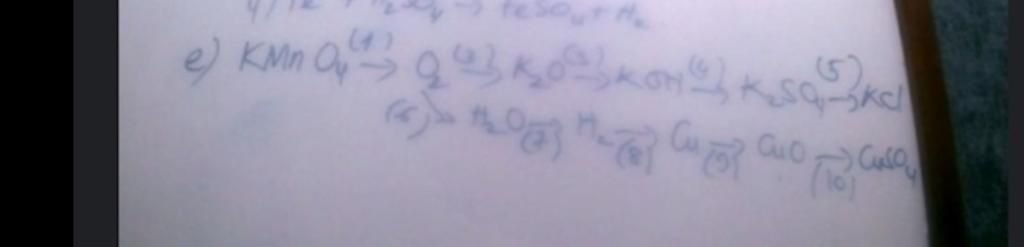 4) Fe + H₂SO₄ → FeSO₄ + H₂
e) KMnO₄ (1)→ O₂ (2)→ K₂O (3)→ KOH (4)→ K₂SO₄ (5)→ KCl
(6)↘ H₂O (7)→ H₂ (8)→ Cu (9)→ CuO (10)→ CuSO₄